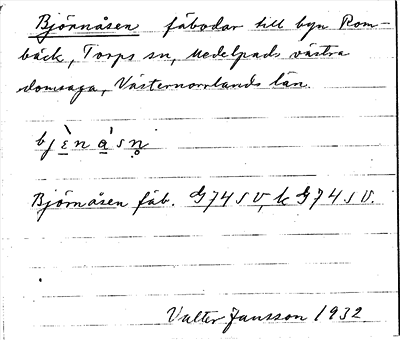 Björnåsen fäbodar till byn Rom-
bäck, Torps sn, Medelpads västra
domsaga, Västernorrlands län.
bjɛ̀nåsn̥
Björnåsen fäb. G74SV, k G74SV.
Valter Jansson 1932